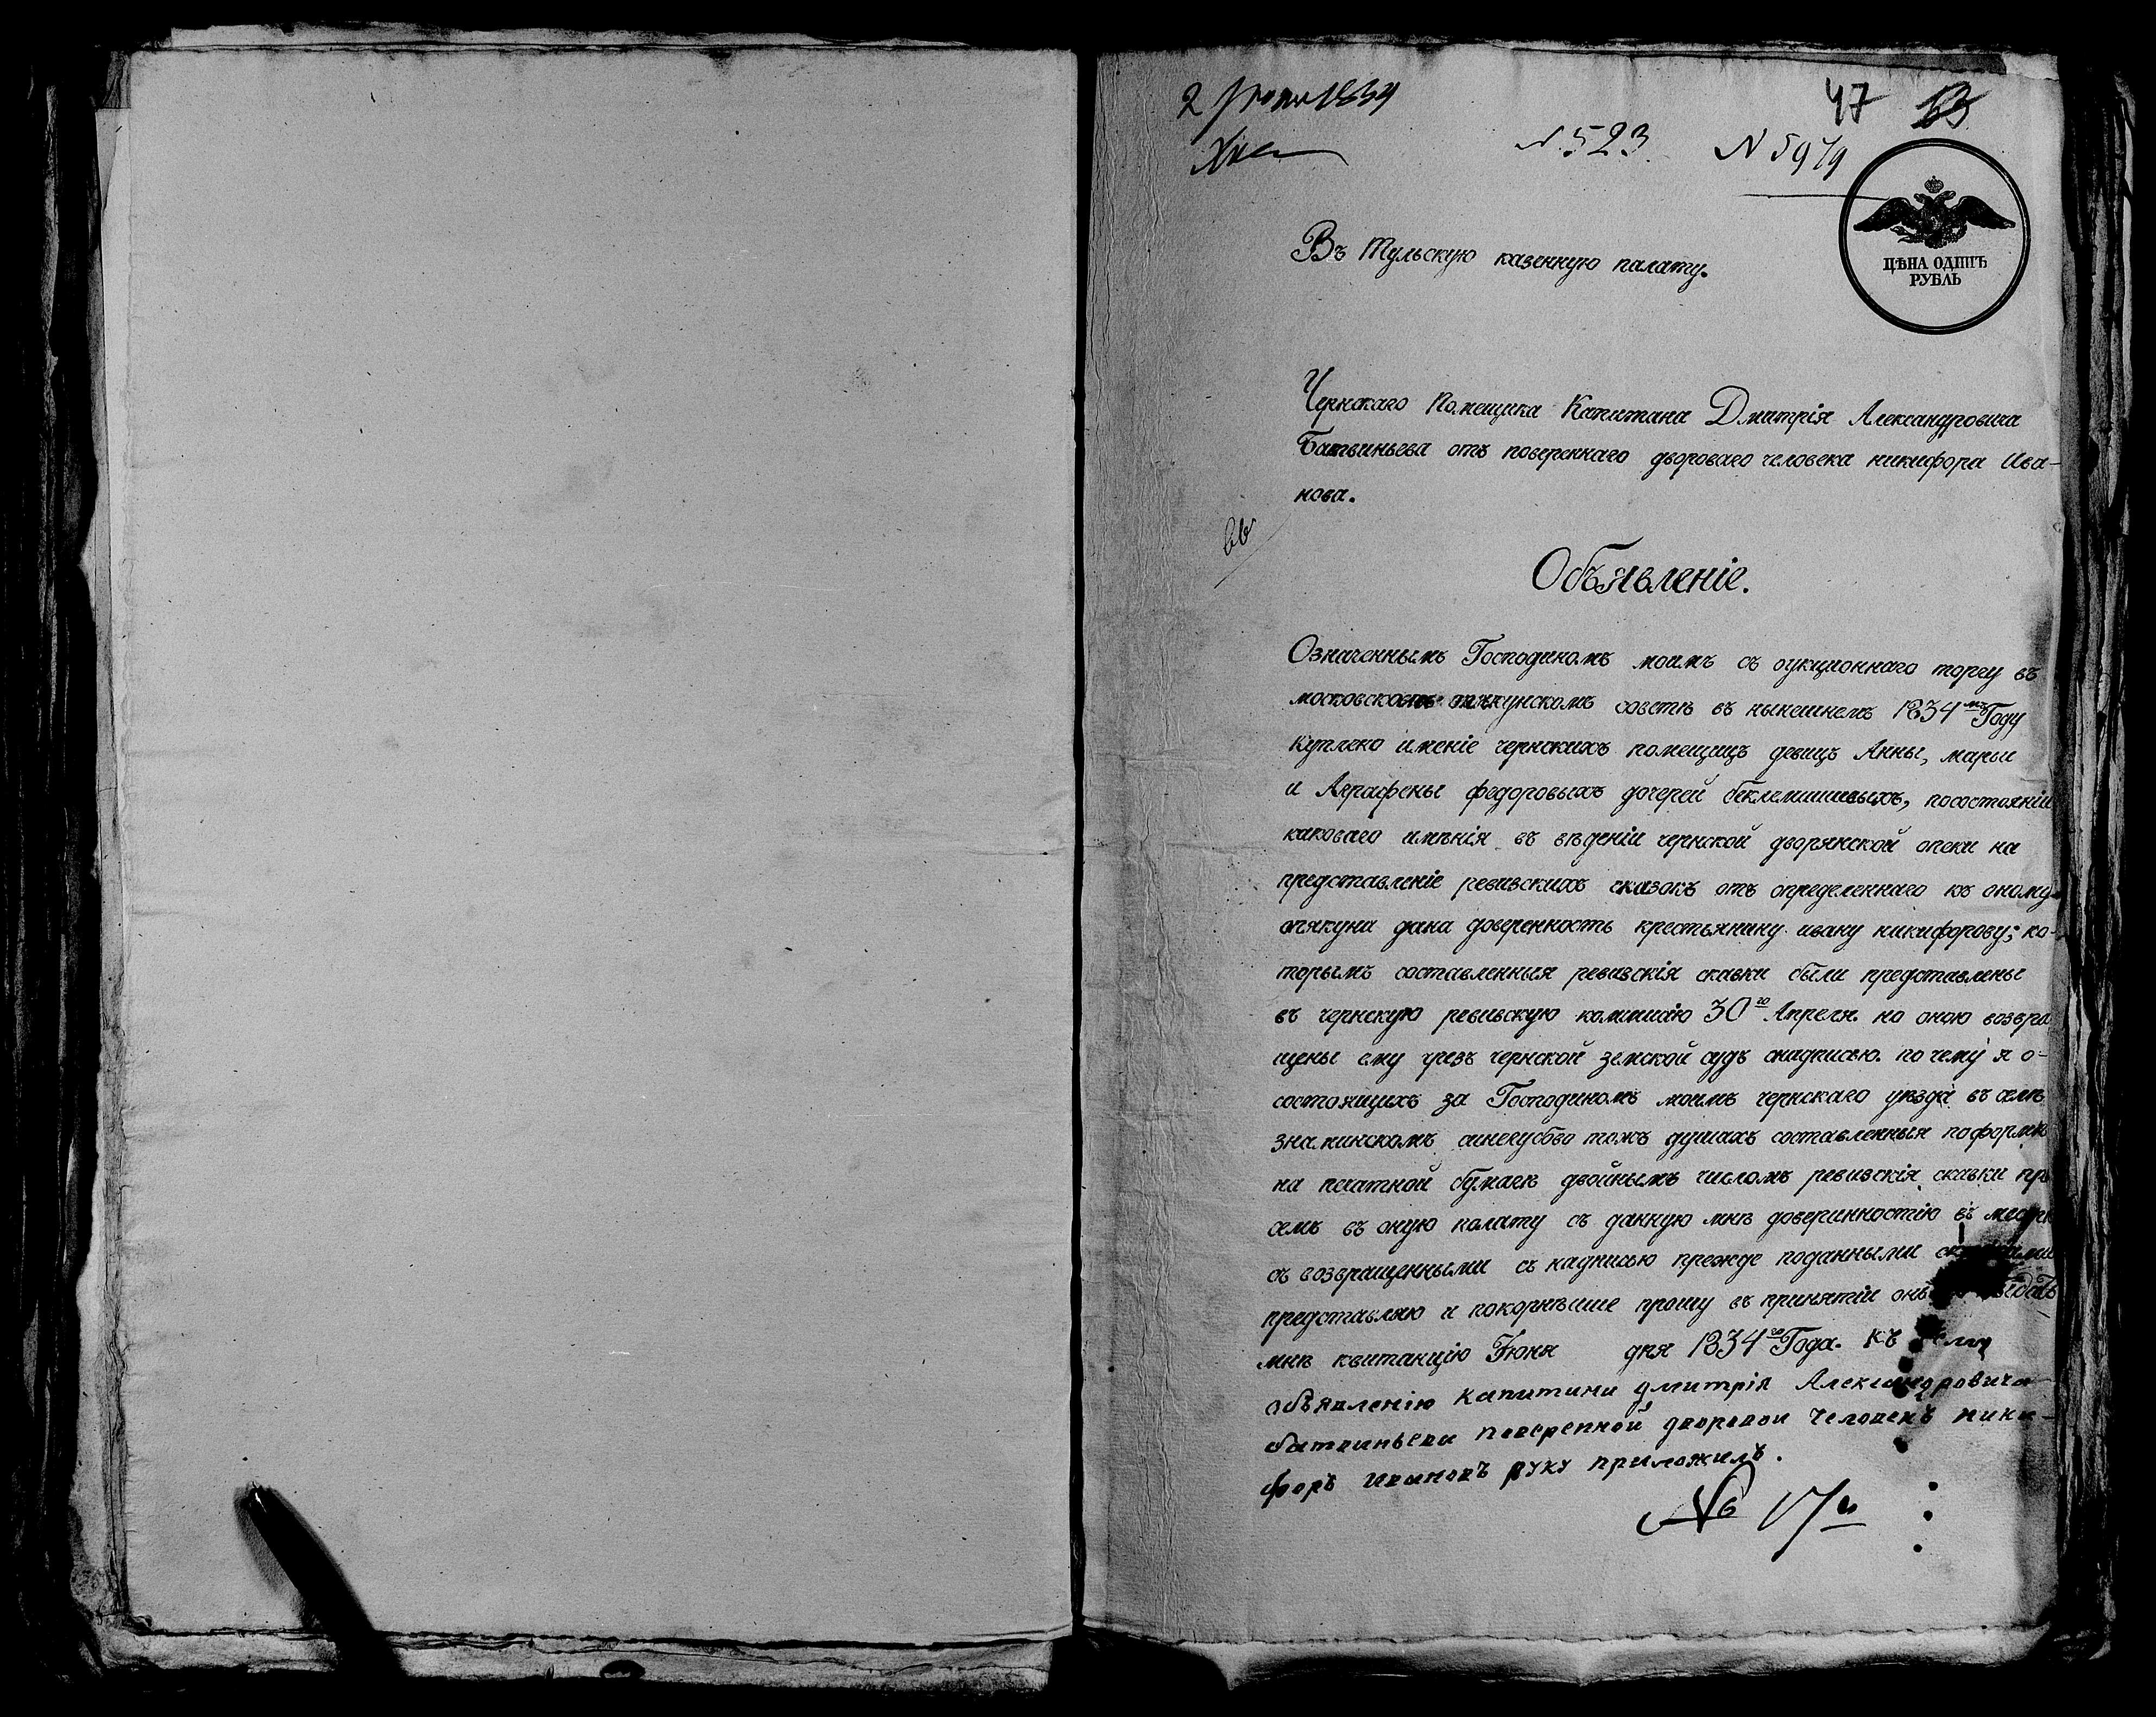 2 Июня 1834
47
N. 523.
N 5979
ЦѢНА ОДИНЪ
РУБЛЬ
Въ Тульскую казенную палату.
Чернскаго Помещика Капитана Дмитрія Александровича
Батвиньева отъ повереннаго двороваго человека никифора Ива-
нова.
Объявленіе.
Означеннымъ Господиномъ моимъ съ оукціоннаго торгу въ
московскомъ опекунскомъ советѣ въ нынешнемъ 1834мъ Году
куплено именіе чернскихъ помещицъ девицъ Анны, марьи
и Аграфены федоровыхъ дочерей беклемишивыхъ, посостояніи
каковаго имѣнія въ вѣденіи чернской дворянской опеки на
представленіе ревизскихъ сказокъ отъ определеннаго къ оному
опякуна дана доверенность крестьянину ивану никифорову; ко-
торымъ составленныя ревизскія сказки были представлены
въ чернскую ревизскую коммисію 30го Апреля. но оною возвра
щены ему чрезъ чернской земской судъ снадписью. по чему я о-
состоящихъ за Господиномъ моимъ чернскаго уѣзда въ селѣ
знаминскомъ синегубово тожъ душахъ составленныя поформѣ
на печатной бумагѣ двойнымъ числомъ ревизскія сказки при
семъ въ оную полату съ данную мнѣ доверинностію въ месте
съ возвращенными съ надписью прежде поданными
представляю и покорнѣише прошу въ принятіи
мнѣ квитанцію Іюня дня 1834го Года. къ сему
объявленію капитана дмитрія Александровича
батвиньева повереннои дворовои человекъ ники-
форъ ивановъ руку приложилъ.